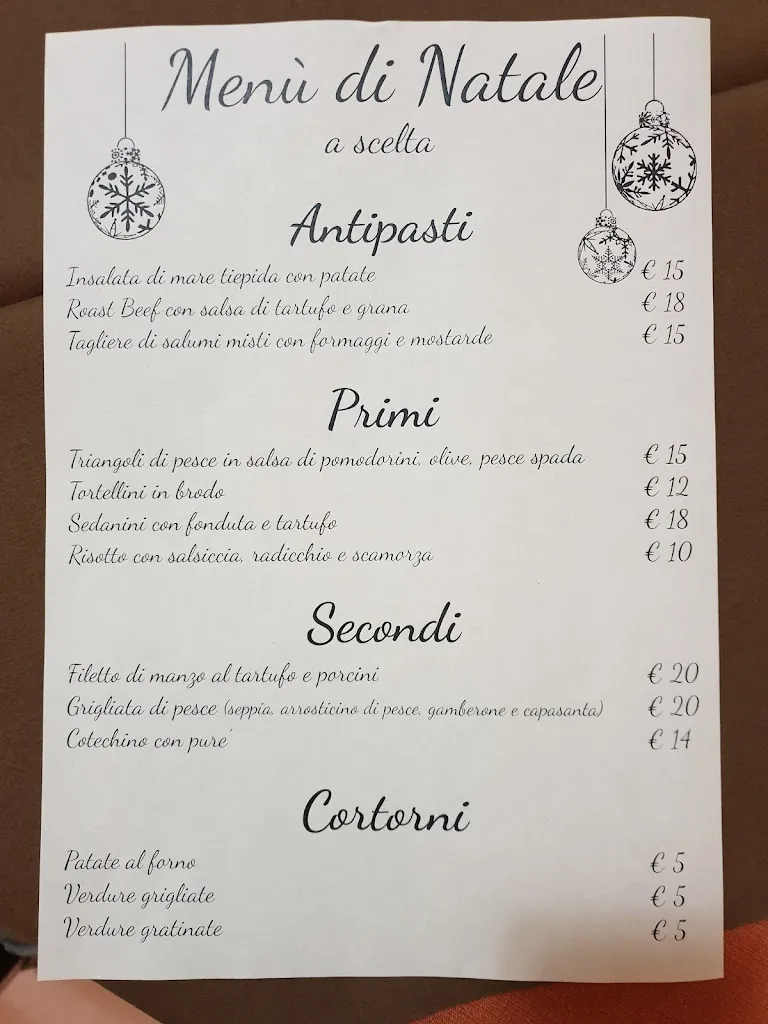 Menù di Natale
a scelta
Antipasti
Insalata di mare tiepida con patate € 15
Roast Beef con salsa di tartufo e grana € 18
Tagliere di salumi misti con formaggi e mostarde € 15
Primi
Triangoli di pesce in salsa di pomodorini, olive, pesce spada € 15
Tortellini in brodo € 12
Sedanini con fonduta e tartufo € 18
Risotto con salsiccia, radicchio e scamorza € 10
Secondi
Filetto di manzo al tartufo e porcini € 20
Grigliata di pesce (seppia, arrosticino di pesce, gamberone e capasanta) € 20
Cotechino con pure' € 14
Cortorni
Patate al forno € 5
Verdure grigliate € 5
Verdure gratinate € 5